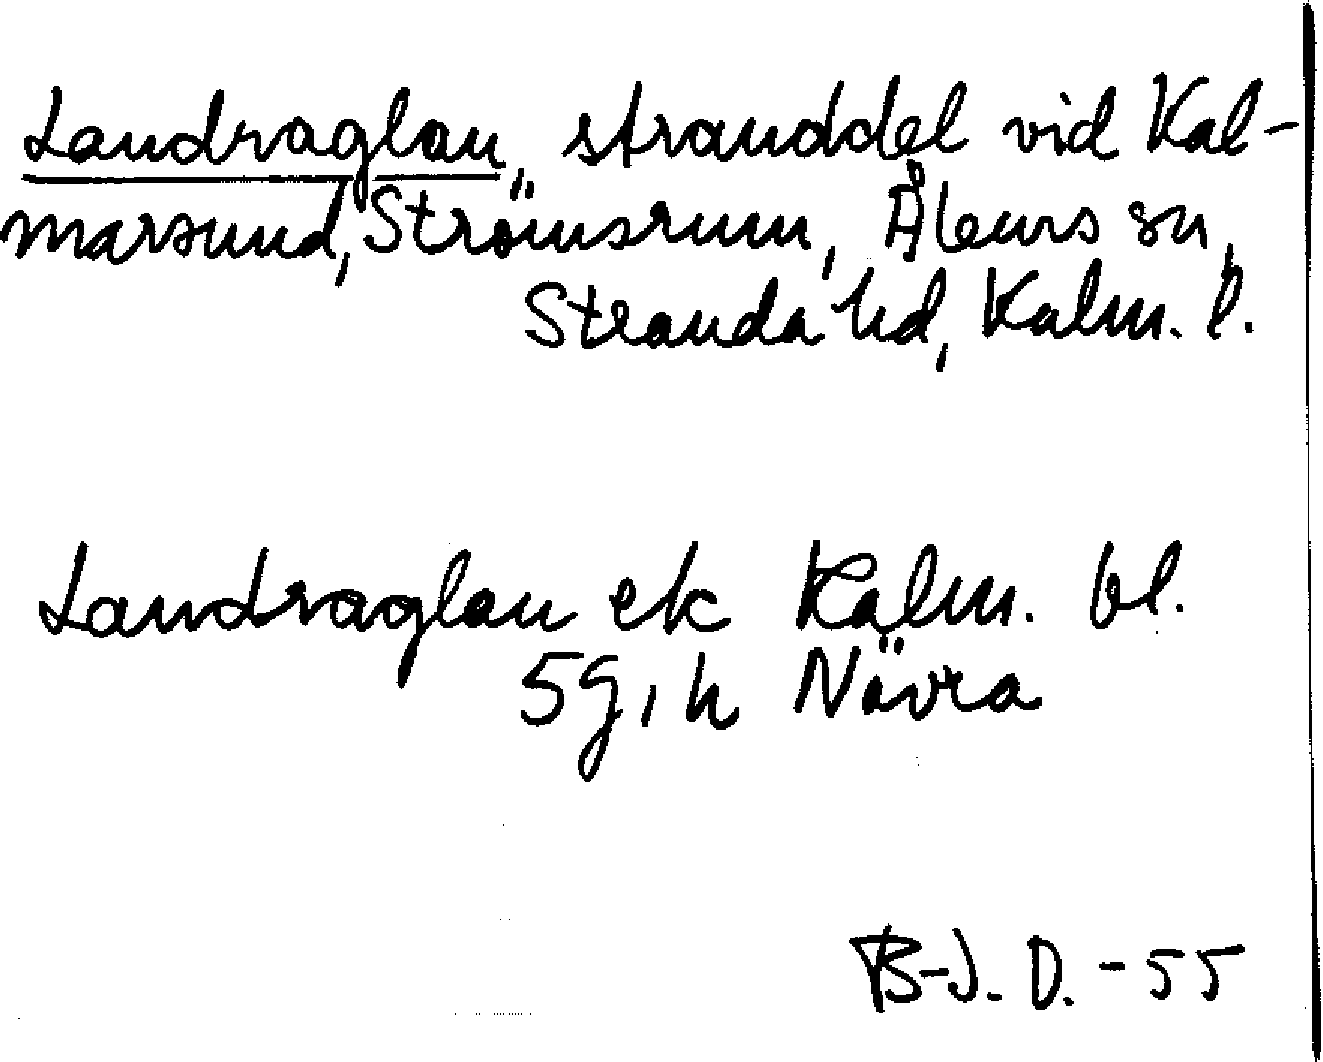 Landraglan, stranddel vid Kal-
marsund, Strömsrum, Ålems sn,
Stranda hd, Kalm. l.
Landraglan ek Kalm. bl.
5g, h Nävra
B-J. D. -55